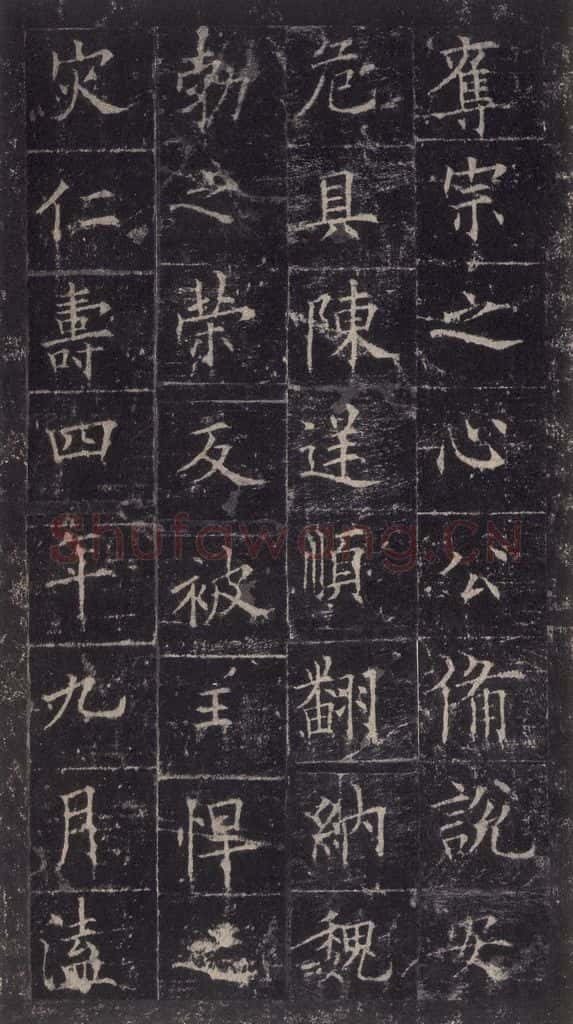 奪宗之心公俻說安
危具陳逆順翻納魏
勃之榮反被王悍之
灾仁壽四年九月溘
Shufawang.CN